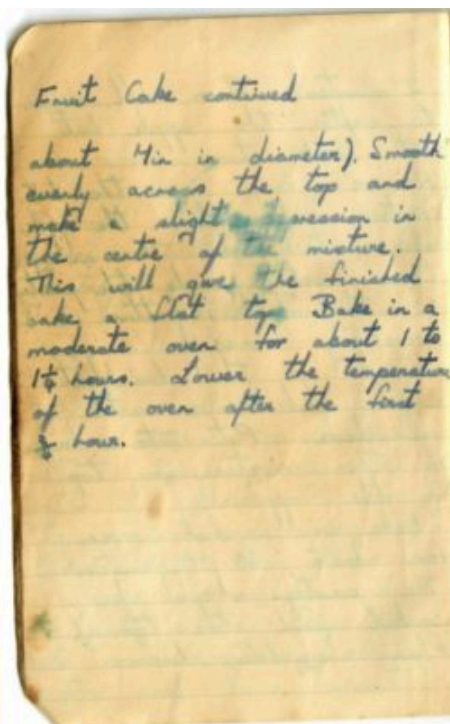 Fruit Cake continued
about in in diameter). Smooth
evenly across the top and
make a slight in
the centre of the mixture.
This will give the finished
cake a flat top. Bake in a
moderate oven for about 1 to
hours. Lower the temperature
of the oven after the first
hour.